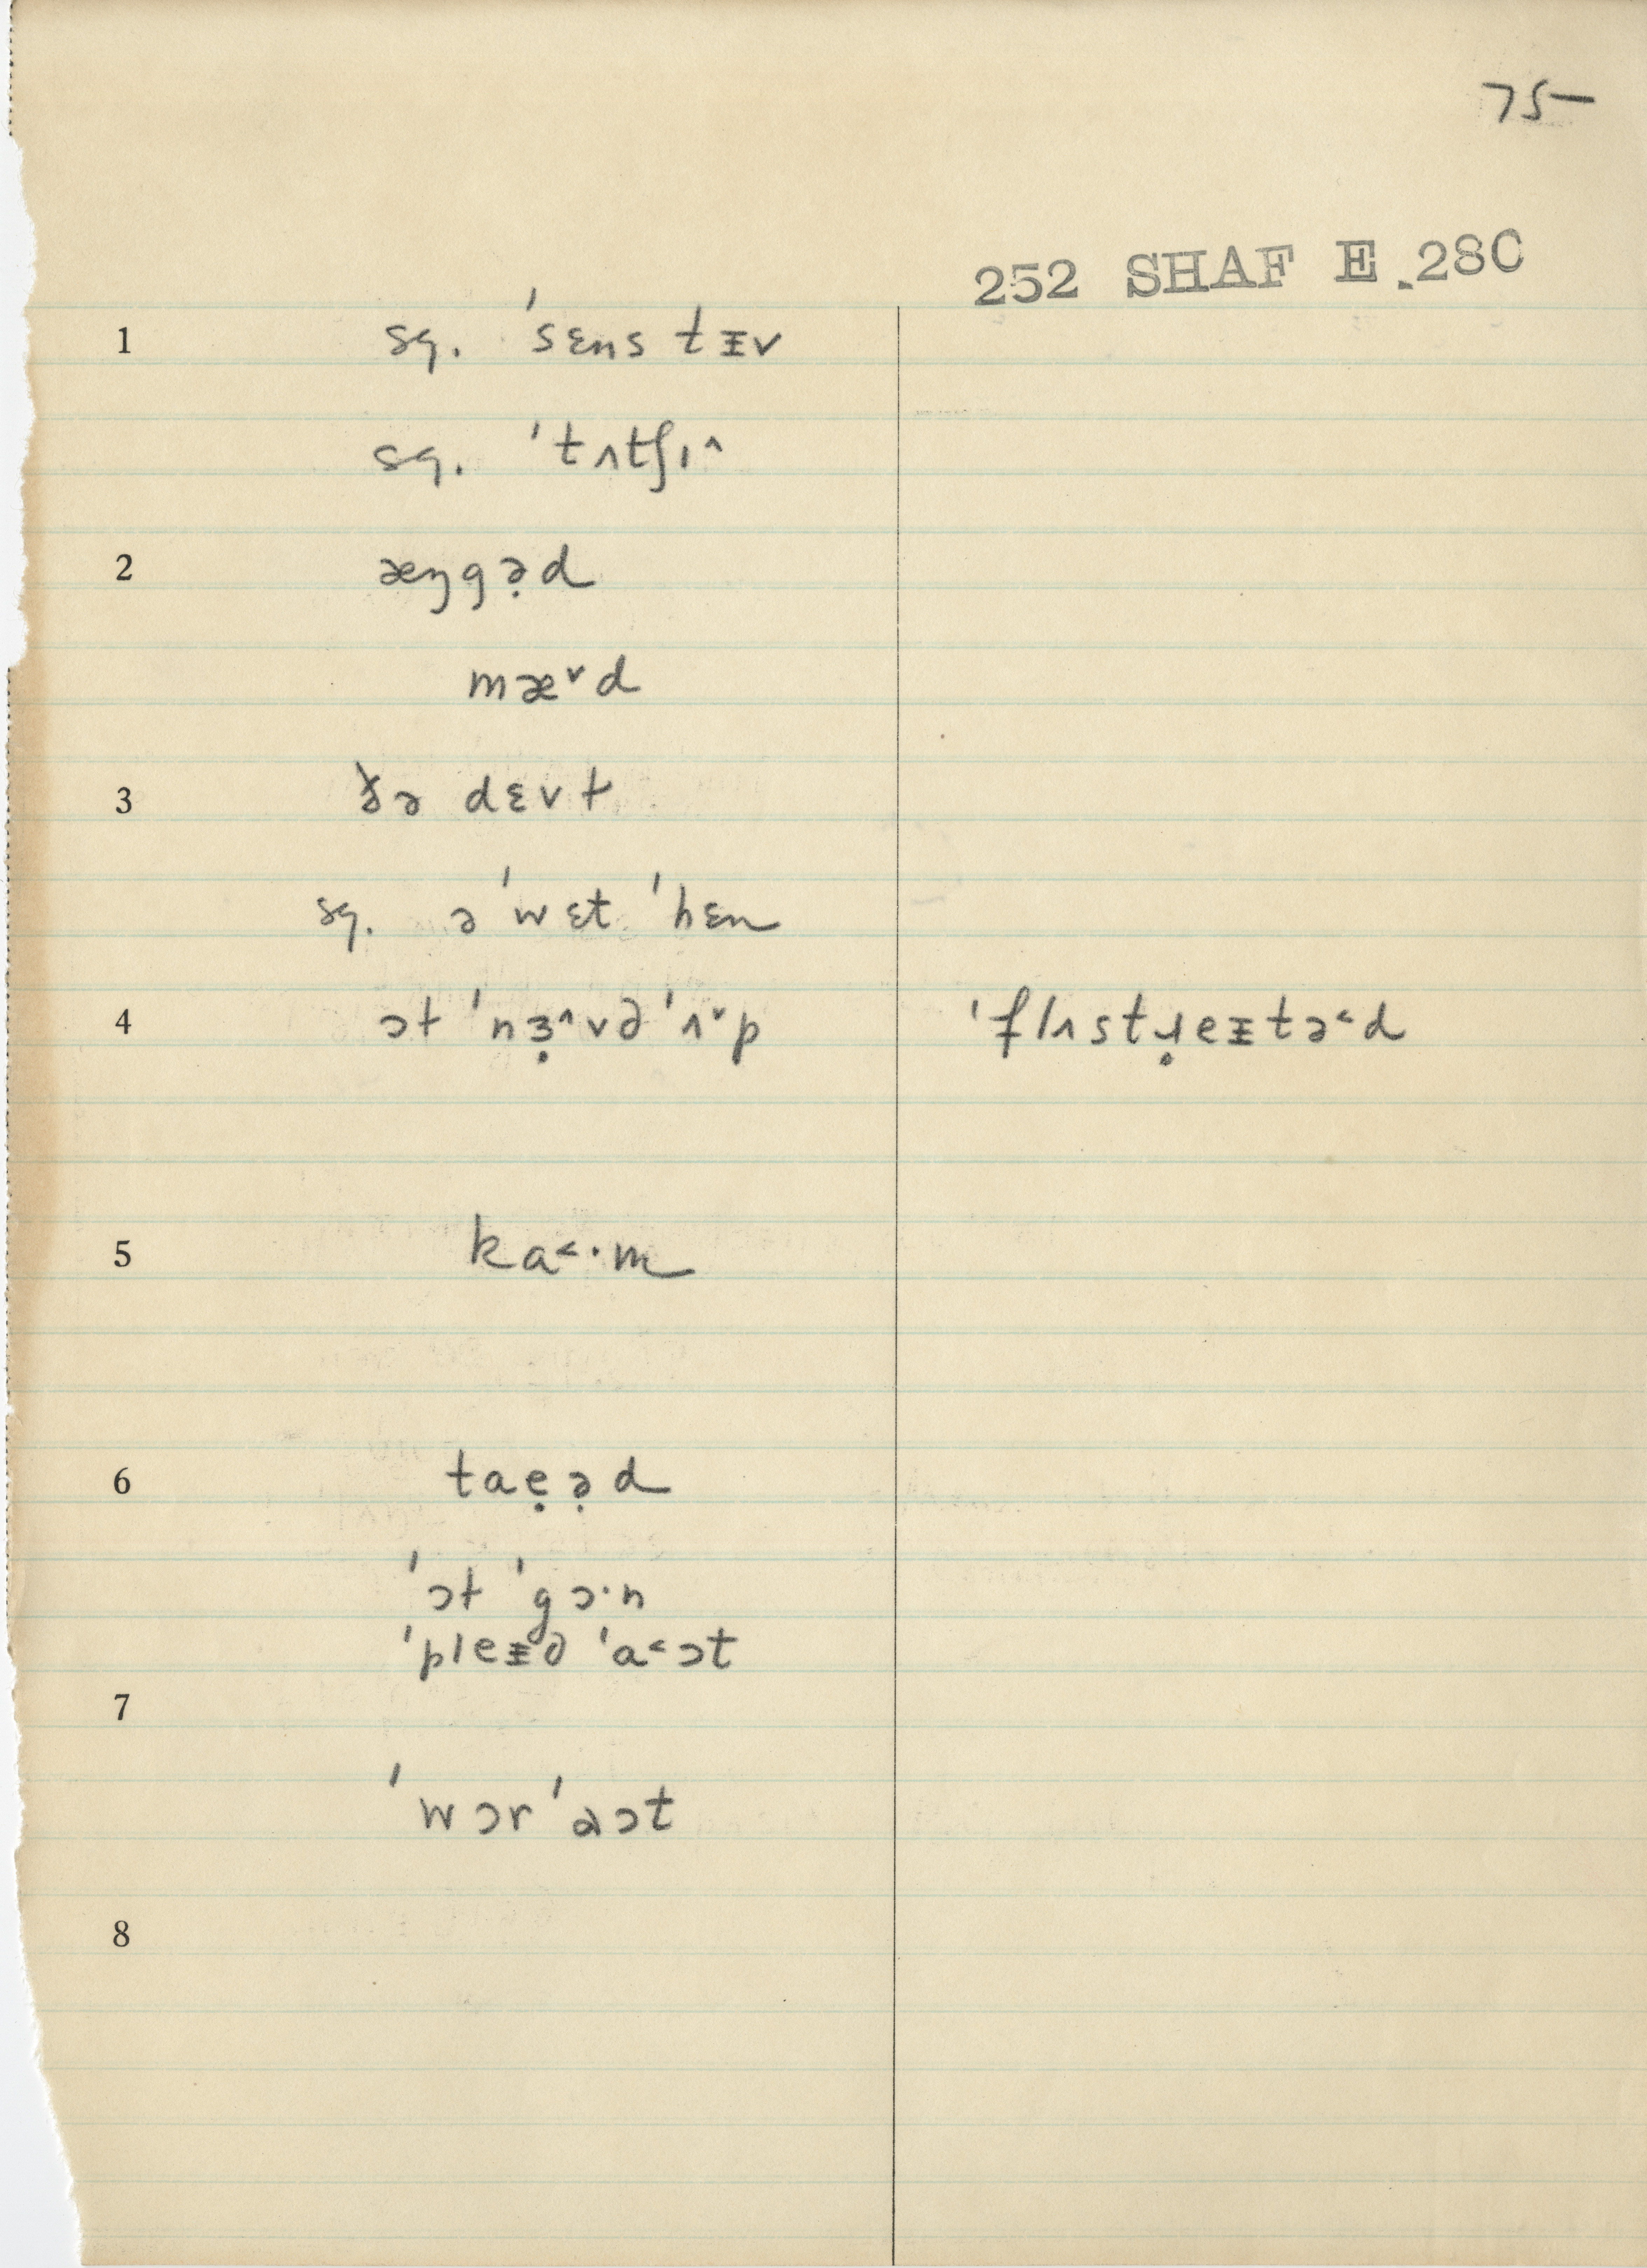 75-
252 SHAF E.280
1 sq. ˈsɛns tᵻv
sq. ˈtʌtʃɪ^
2 æŋgə̣d
mæ˅d
3 ðə dɛvt
sq. ə ˈwɛt ˈhɛn
4 ɔt ˈnɜ̣^vəˈʌ˅p ˈflʌstɹ̣eᵻtə˂d
5 ka˂·m
6 taẹə̣d
ˈɔt ˈgɔ·n
ˈpleᵻd ˈa˂ɔt
7
ˈwɔrˈɑɔt
8